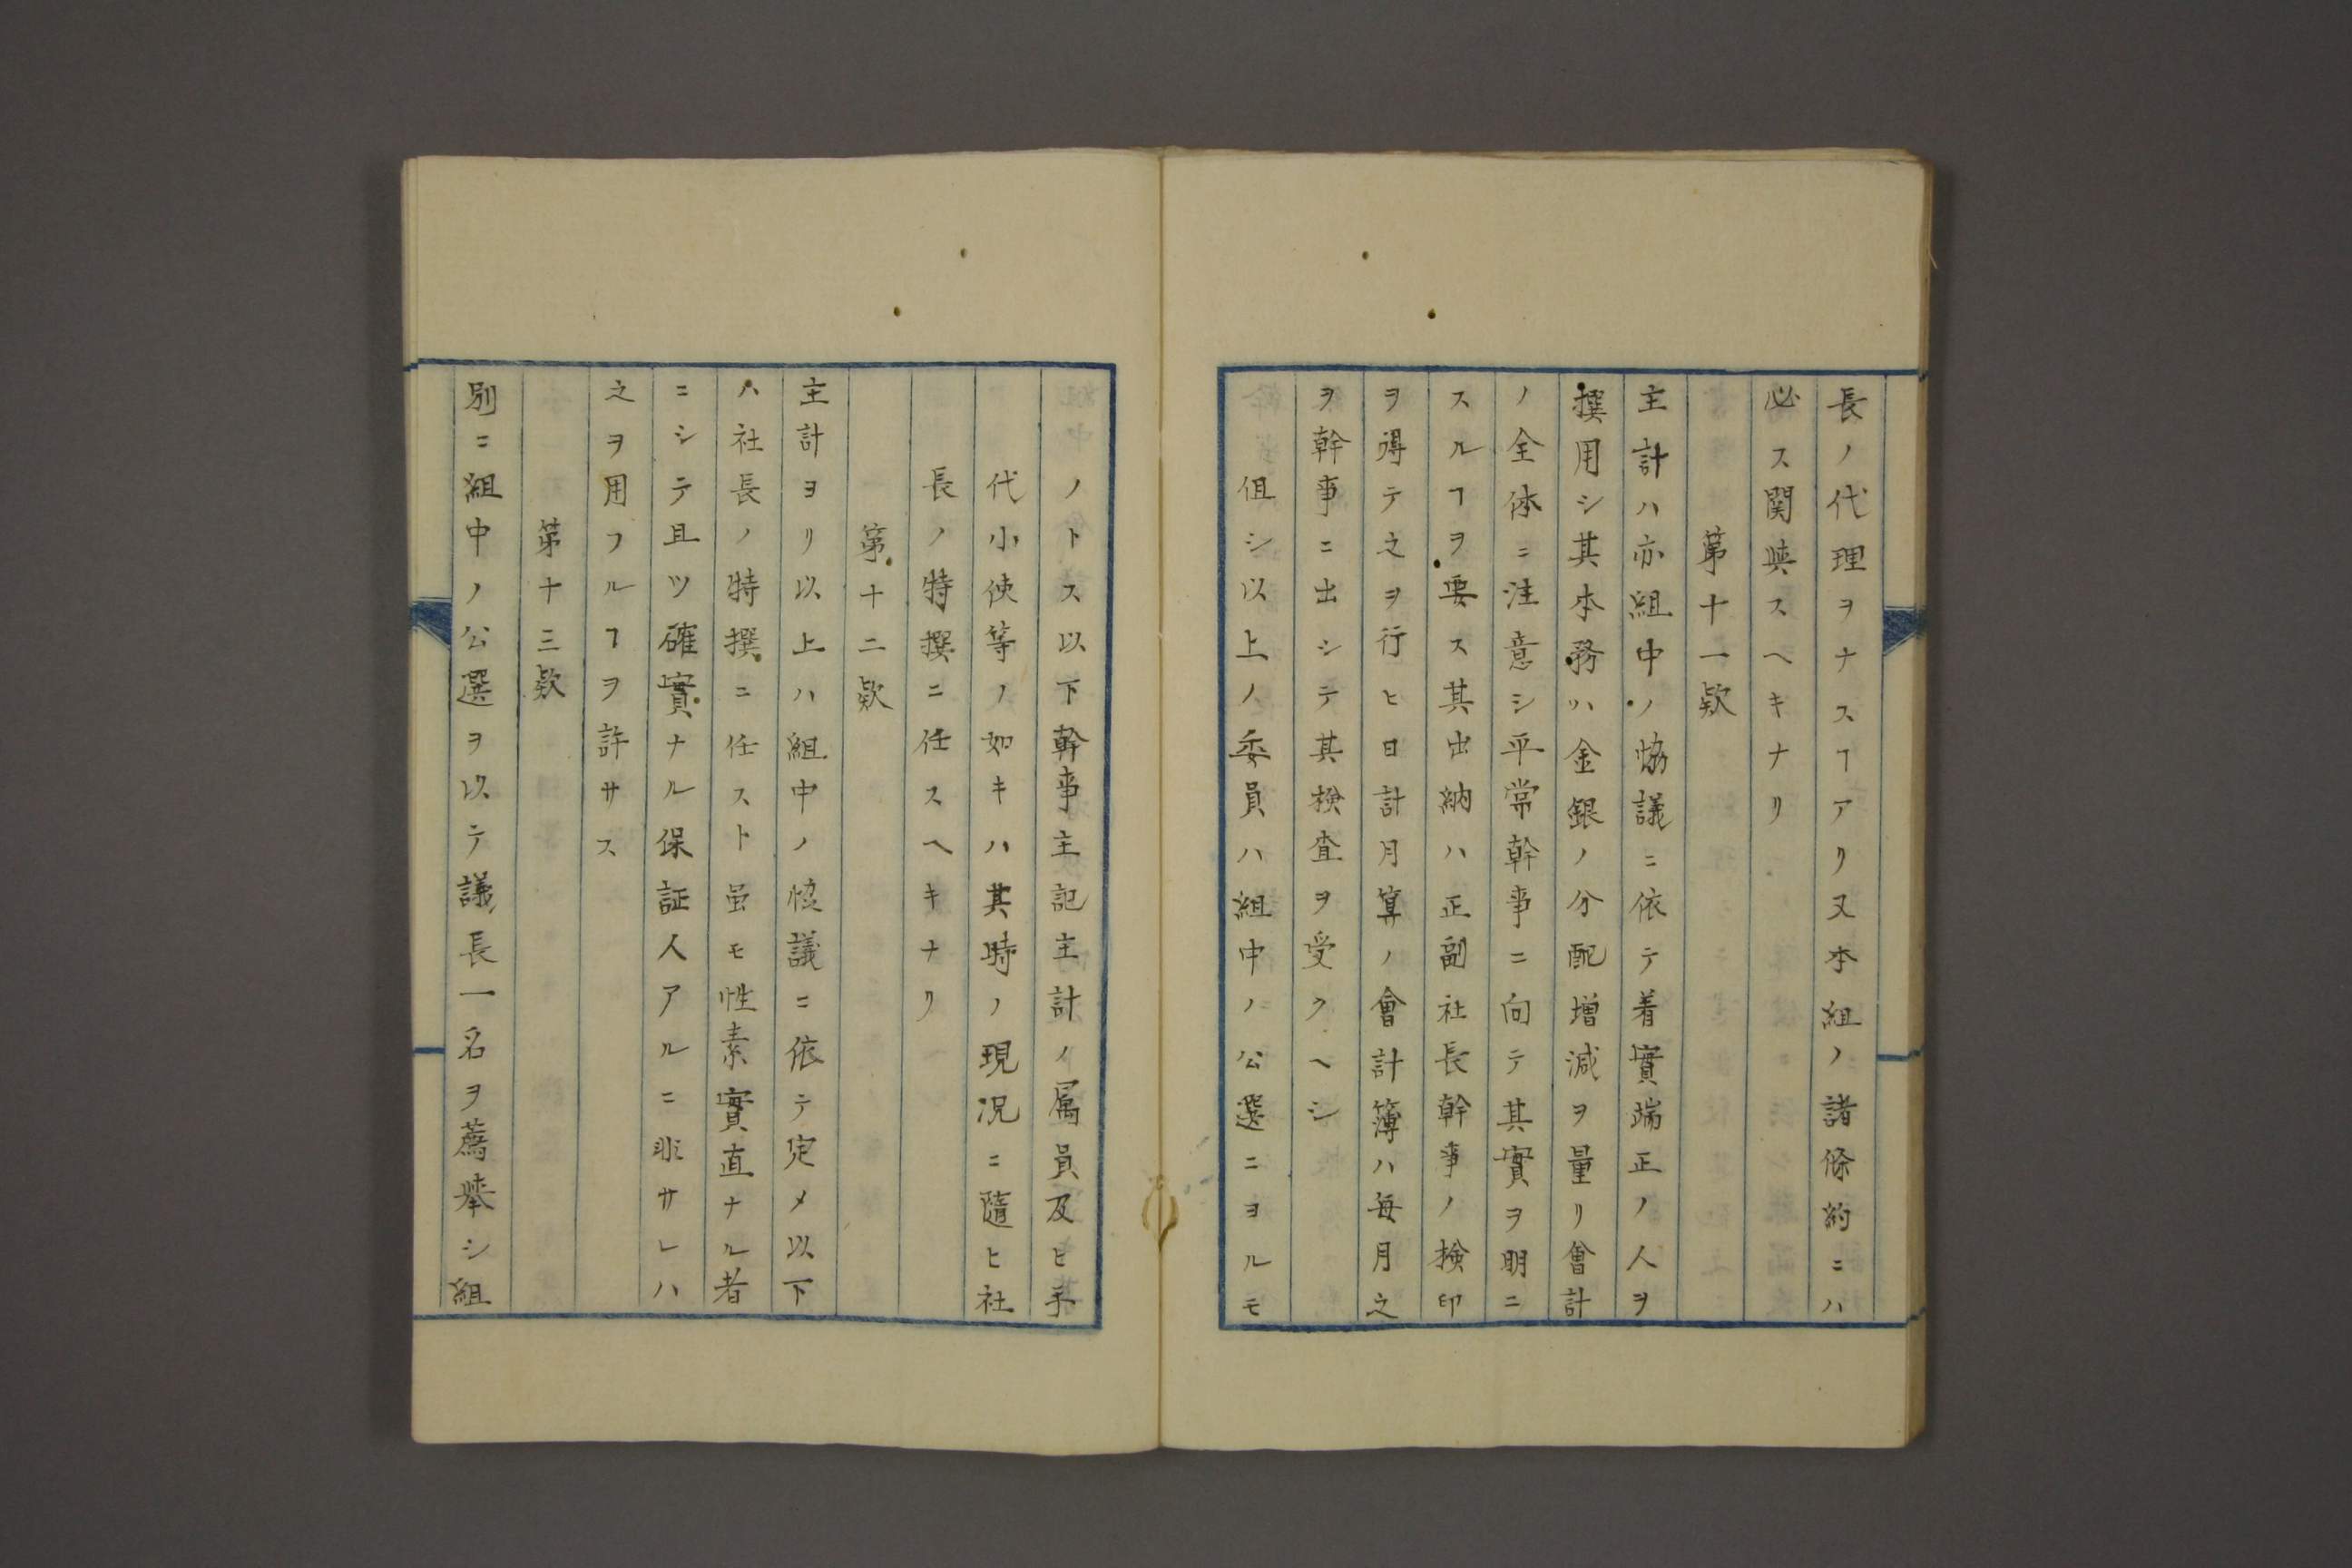 長ノ代理ヲナスヿアリ又本組ノ諸條約ニハ
必ス関與スヘキナリ
第十一款
主計ハ亦組中ノ恊議ニ依テ着實端正ノ人ヲ
撰用シ其本務ハ金銀ノ分配増減ヲ量リ會計
ノ全体ニ注意シ平常幹事ニ向テ其實ヲ明ニ
スルヿヲ要ス其出納ハ正副社長幹事ノ検印
ヲ得テ之ヲ行ヒ日計月算ノ會計簿ハ毎月之
ヲ幹事ニ出シテ其検査ヲ受クヘシ
但シ以上ノ委員ハ組中ノ公選ニヨルモ
ノトス以下幹事主記主計ノ属員及ヒ手
代小使等ノ如キハ其時ノ現況ニ隨ヒ社
長ノ特撰ニ任スヘキナリ
第十二款
主計ヨリ以上ハ組中ノ恊議ニ依テ定メ以下
ハ社長ノ特撰ニ任スト虽モ性素實直ナル者
ニシテ且ツ確實ナル保証人アルニ非サレハ
之ヲ用フルヿヲ許サス
第十三款
別ニ組中ノ公選ヲ以テ議長一名ヲ薦挙シ組